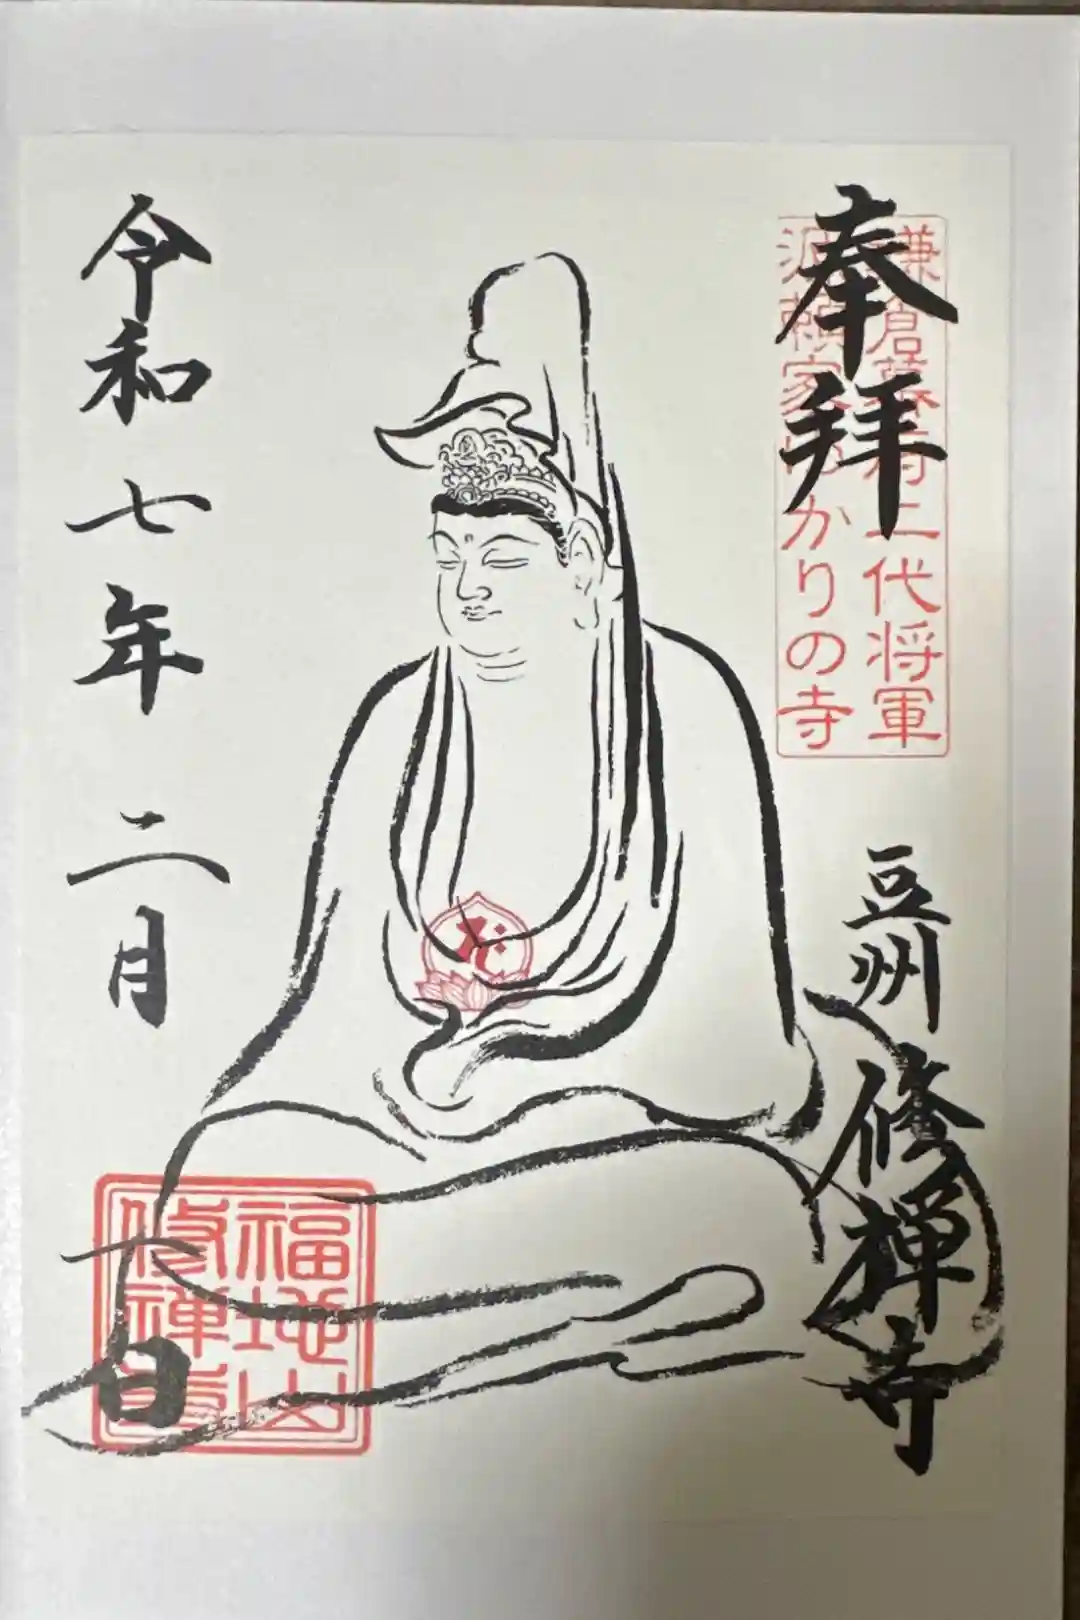 奉拝
鎌倉幕府二代将軍
源頼家ゆかりの寺
豆州 修禅寺
令和七年二月六日
福地山
修禅寺